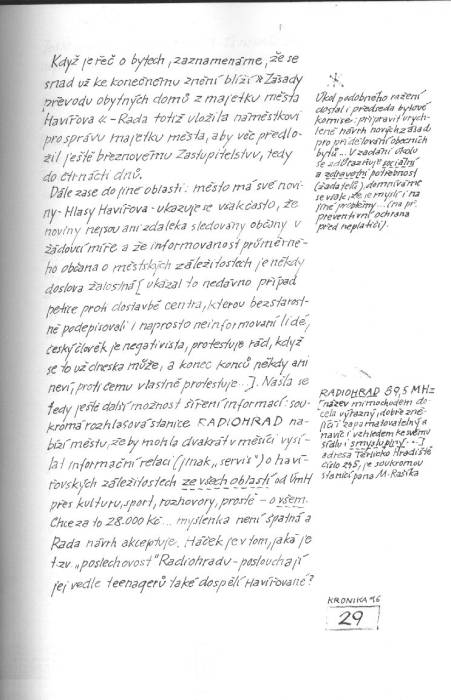 Když je řeč o bytech, zaznamenáme, že se
snad už ke konečnému znění blíží »Zásady
převodu obytných domů z majetku města
Havířova« - Rada totiž uložila náměstkovi
pro správu majetku města, aby věc předlo-
žil ještě březnovému Zastupitelstvu, tedy
do čtrnácti dnů.
Dále zase do jiné oblasti: město má své novi-
ny - Hlasy Havířova - ukazuje se však často, že
noviny nejsou ani zdaleka sledovány občany v
žádoucí míře a že informovanost průměrné-
ho občana o městských záležitostech je někdy
doslova žalostná [ukázal to nedávno případ
petice proti dostavbě centra, kterou bezstarost-
ně podepisovali i naprosto neinformovaní lidé,
český člověk je negativista, protestuje rád, když
se to už dneska může, a konec konců někdy ani
neví, proti čemu vlastně protestuje...]. Našla se
tedy ještě další možnost šíření informací: sou-
kromá rozhlasová stanice RADIOHRAD na-
bízí městu, že by mohla dvakrát v měsíci vysí-
lat informační relaci (jinak „servis") o haví-
řovských záležitostech ze všech oblastí od ÚmH
přes kulturu, sport, rozhovory, prostě - o všem.
Chce za to 28.000 Kč... myšlenka není špatná a
Rada návrh akceptuje. Háček je v tom, jaká je
tzv. „poslechovost" Radiohradu - poslouchají
jej vedle teenagerů také dospělí Havířované?
*
Úkol podobného ražení
dostal i předseda bytové
komise: připravit urych-
leně návrh nových zásad
pro přidělování obecních
bytů... V zadání úkolu
se zdůrazňuje sociální
a zdravotní potřebnost
(žadatelů), domníváme
se však, že je myslí i na
jiné problémy... (na př.
preventivní ochrana
před neplatiči).
RADIOHRAD 89,5 MHz
[název mimochodem do-
cela výrazný, dobře zně-
jící i zapamatovatelný a
navíc i vzhledem ke svému
sídlu i smysluplný...]
adresa Těrlicko Hradiště
číslo 245, je soukromou
stanicí pana M. Raška
KRONIKA '96
29